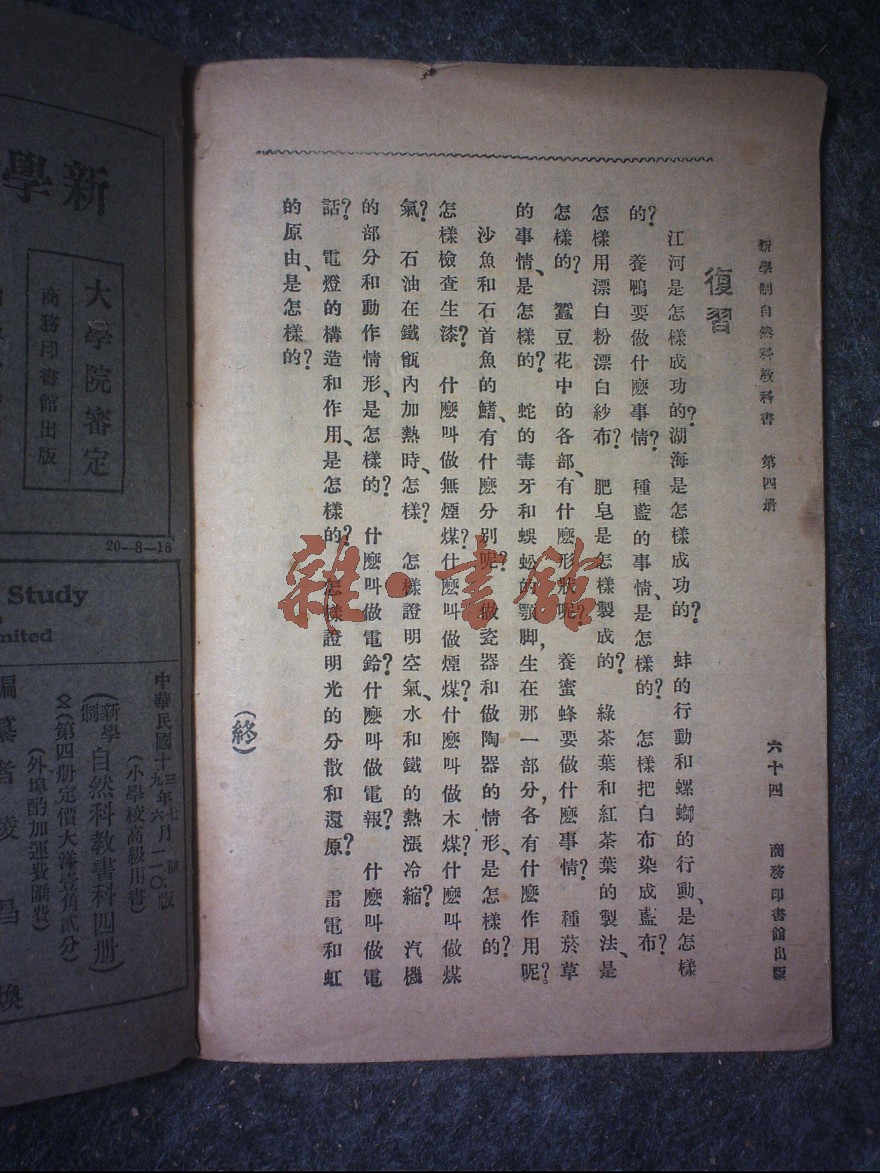 新學制自然科教科書 第四册 六十四 商務印書館出版
復習
江河是怎樣成功的?湖海是怎樣成功的? 蚌的行動和螺螄的行動、是怎樣
的? 養鴨要做什麽事情? 種藍的事情、是怎樣的? 怎樣把白布染成藍布?
怎樣用漂白粉漂白紗布? 肥皂是怎樣製成的? 綠茶葉和紅茶葉的製法、是
怎樣的? 蠶豆花中的各部、有什麽形狀呢? 養蜜蜂要做什麽事情? 種菸草
的事情、是怎樣的? 蛇的毒牙和蜈蚣的顎脚,生在那一部分,各有什麽作用呢?
沙魚和石首魚的鰭、有什麽分別呢? 做瓷器和做陶器的情形、是怎樣的?
怎樣檢查生漆? 什麽叫做無煙煤?什麽叫做煙煤?什麽叫做木煤?什麽叫做煤
氣? 石油在鐵甑內加熱時、怎樣? 怎樣證明空氣、水和鐵的熱漲冷縮? 汽機
的部分和動作情形、是怎樣的? 什麽叫做電鈴?什麽叫做電報? 什麽叫做電
話? 電燈的構造和作用、是怎樣的? 怎樣證明光的分散和還原? 雷電和虹
的原由、是怎樣的?
(終)
雜·書館
新學
大學院審定
商務印書館出版
20—8—18
Study
mited
中華民國十三年七月初版
十九年六月一一〇版
(小學校高級用書)
(新學制自然科教書科四册)
(第四册定價大洋壹角貳分)
(外埠酌加運費匯費)
編纂者 凌昌煥